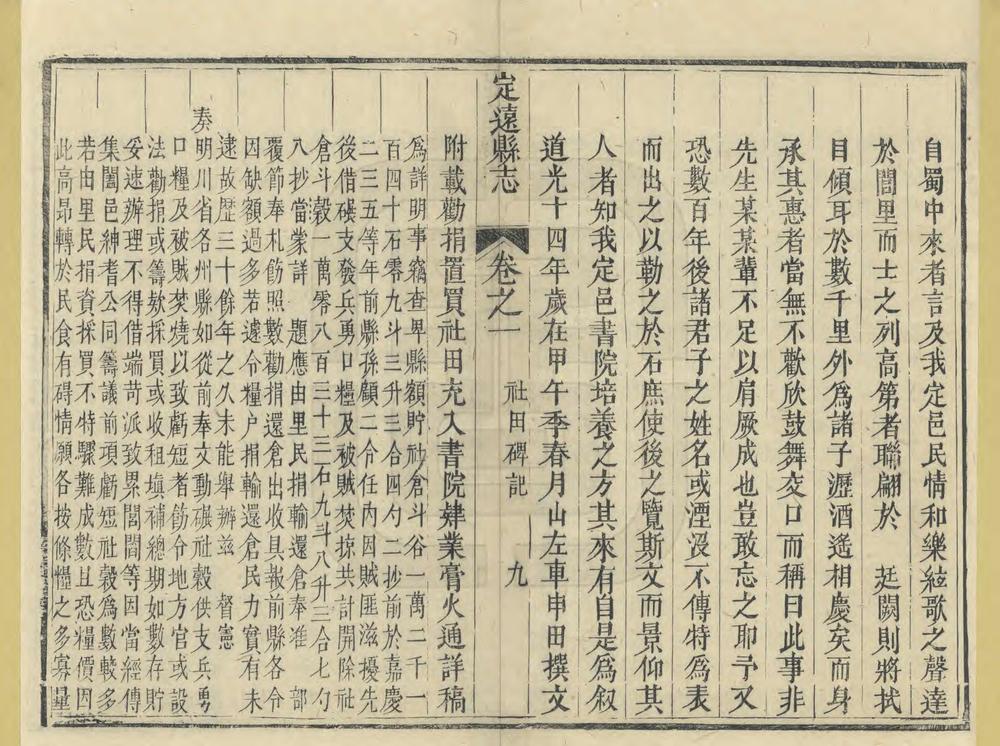 自蜀中來者言及我定邑民情和樂絃歌之聲達
於閭里而士之列高第者聯翩於　廷闕則將拭
目傾耳於數千里外爲諸子瀝酒遙相慶矣而身
承其惠者當無不歡欣鼓舞交口而稱曰此事非
先生某某輩不足以肩厥成也豈敢忘之耶予又
恐數百年後諸君子之姓名或湮沒不傳特爲表
而出之以勒之於石庶使後之覽斯文而景仰其
人者知我定邑書院培養之方其來有自是爲叙
道光十四年歲在甲午季春月山左車申田撰文
定遠縣志　卷之一　社田碑記　九
附載勸捐置買社田充入書院肄業膏火通詳稿
爲詳明事竊查卑縣額貯社倉斗谷一萬二千一
百四十石零九斗三升三合四勺二抄前於嘉慶
二三五等年前縣孫顧二令任內因賊匪滋擾先
後借碾支發兵勇口糧及被賊焚掠共計開除社
倉斗穀一萬零八百三十三石九斗八升三合七勺
八抄當業詳　題應由里民捐輸還倉奉准　部
覆節奉札飭照數勸捐還倉出收具報前縣各令
因缺額過多若遽令糧户捐輸還倉民力實有未
逮故歷三十餘年之久未能舉辦茲　督憲
奏明川省各州縣如從前奉文動碾社穀供支兵勇
口糧及被賊焚燒以致虧短者飭令地方官或設
法勸捐或籌欵採買或收租塡補總期如數存貯
妥速辦理不得借端苛派致累閭閻等因當經傳
集闔邑紳耆公同籌議前項虧短社穀爲數較多
若由里民捐資採買不特驟難成數且恐糧價因
此高昂轉於民食有碍情願各按條糧之多寡量